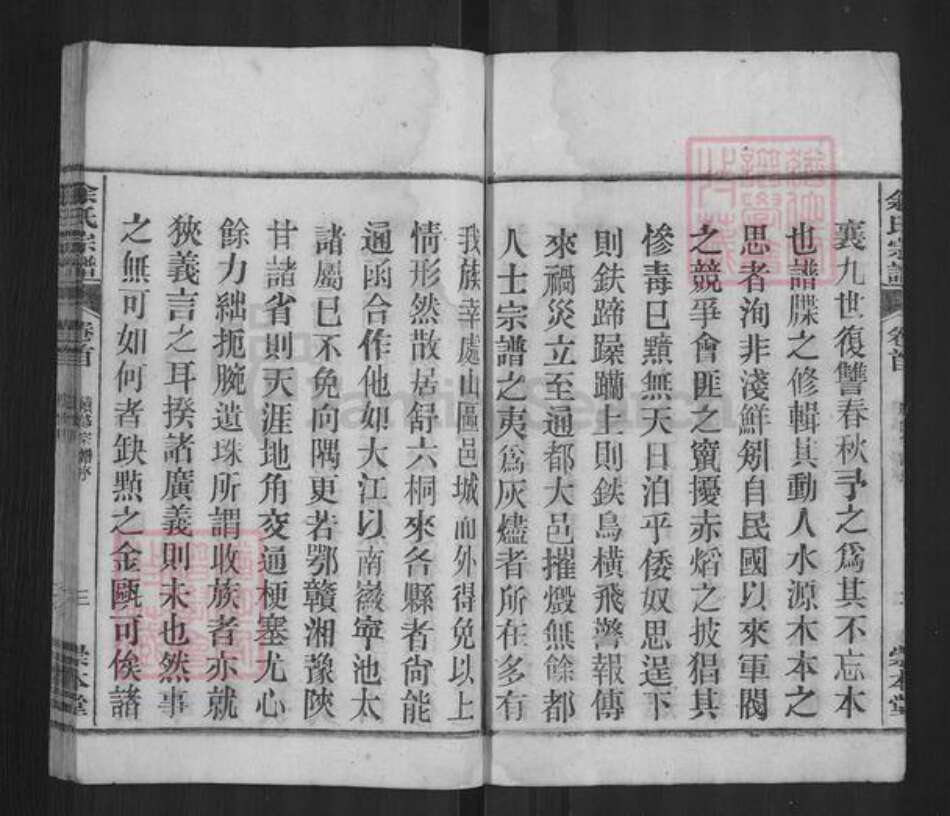 余氏宗譜
卷首
崇本堂
襄九世復讐春秋予之爲其不忘本
也譜牒之修輯其動人水源木本之
思者洵非淺鮮剏自民國以來軍閥
之競爭會匪之竄擾赤熖之披猖其
慘毒已黯無天日洎乎倭奴思逞下
則鉄蹄躁躪上則鉄鳥橫飛警報傳
來禍災立至通都大邑摧燬無餘都
人士宗譜之夷爲灰燼者所在多有
我族幸處山區邑城而外得免以上
情形然散居舒六桐來各縣者尙能
通函合作他如大江以南徽寧池太
諸屬已不免向隅更若鄂贛湘豫陝
甘諸省則天涯地角交通梗塞尤心
餘力絀扼腕遺珠所謂收族者亦就
狹義言之耳揆諸廣義則未也然事
之無可如何者缺㸃之金甌可俟諸
余氏宗譜
卷首
續幕宗譜序
三
崇本堂